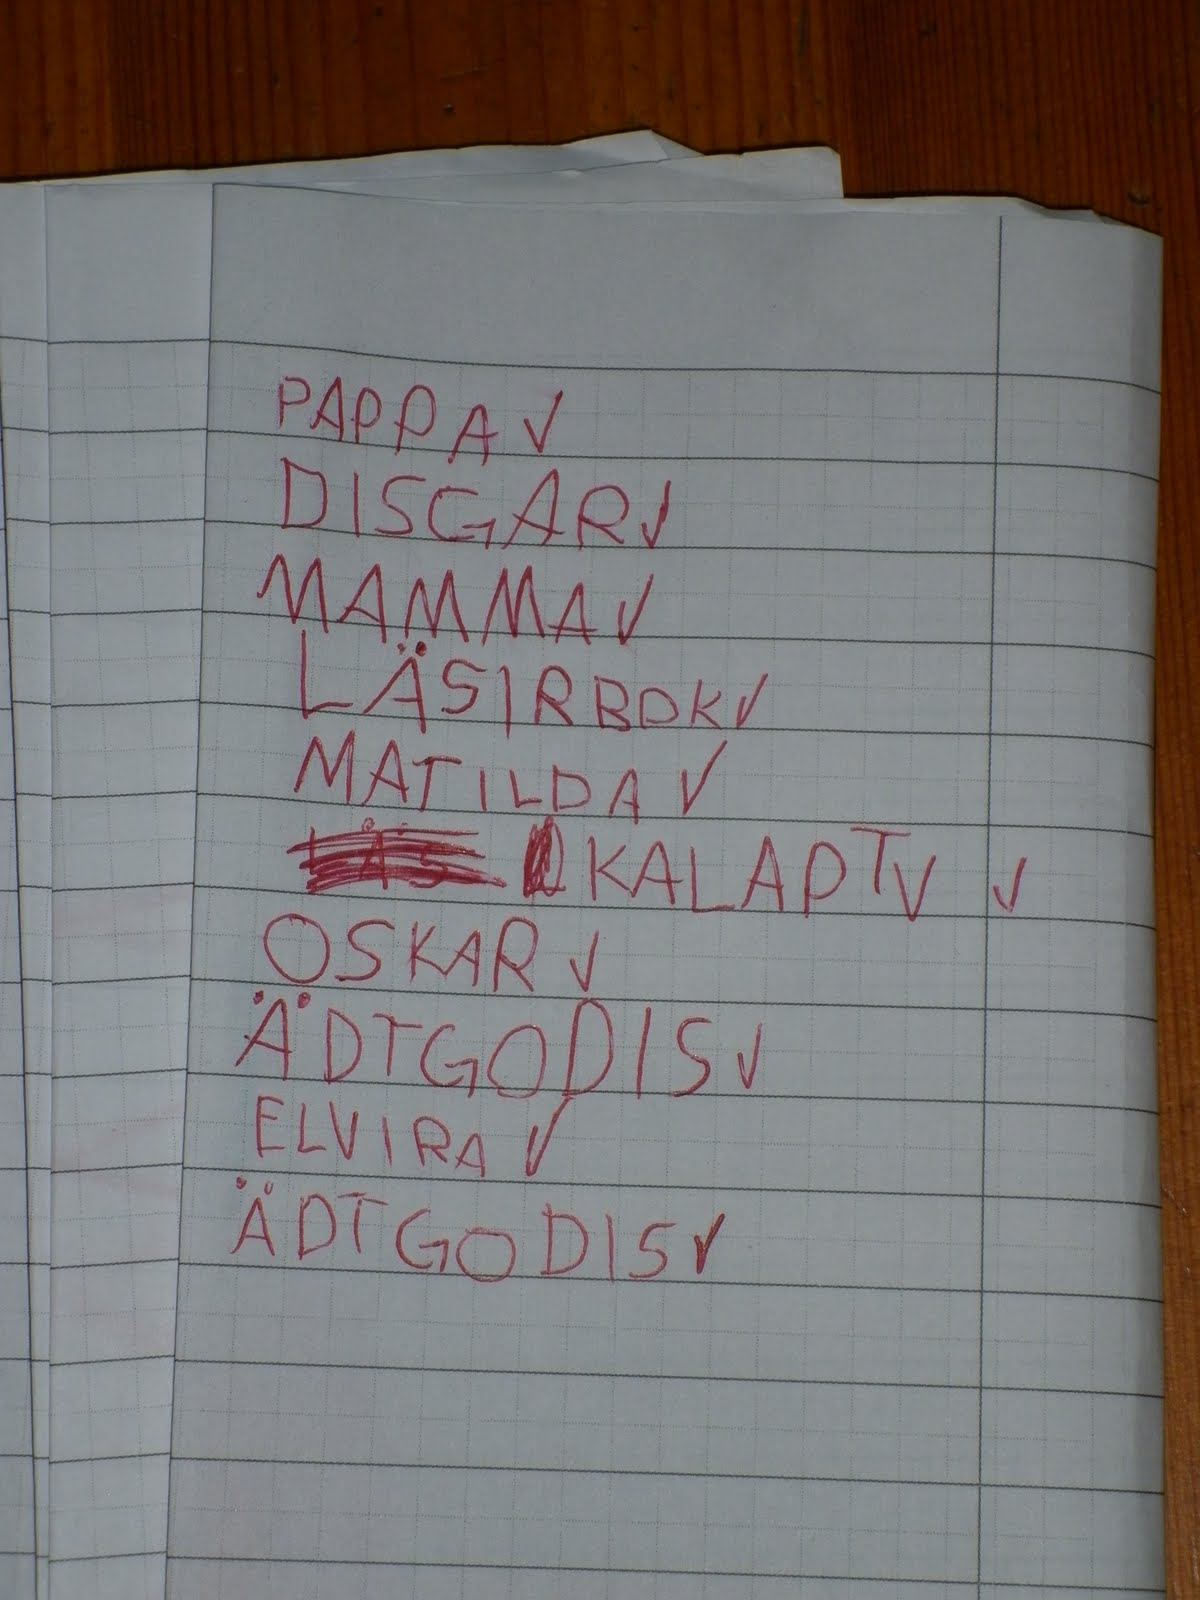 PAPPA ✓
DISGAR ✓
MAMMA ✓
LÄSIRBOK ✓
MATILDA ✓
KALAPTV ✓
OSKAR ✓
ÄDTGODIS ✓
ELVIRA ✓
ÄDTGODIS ✓